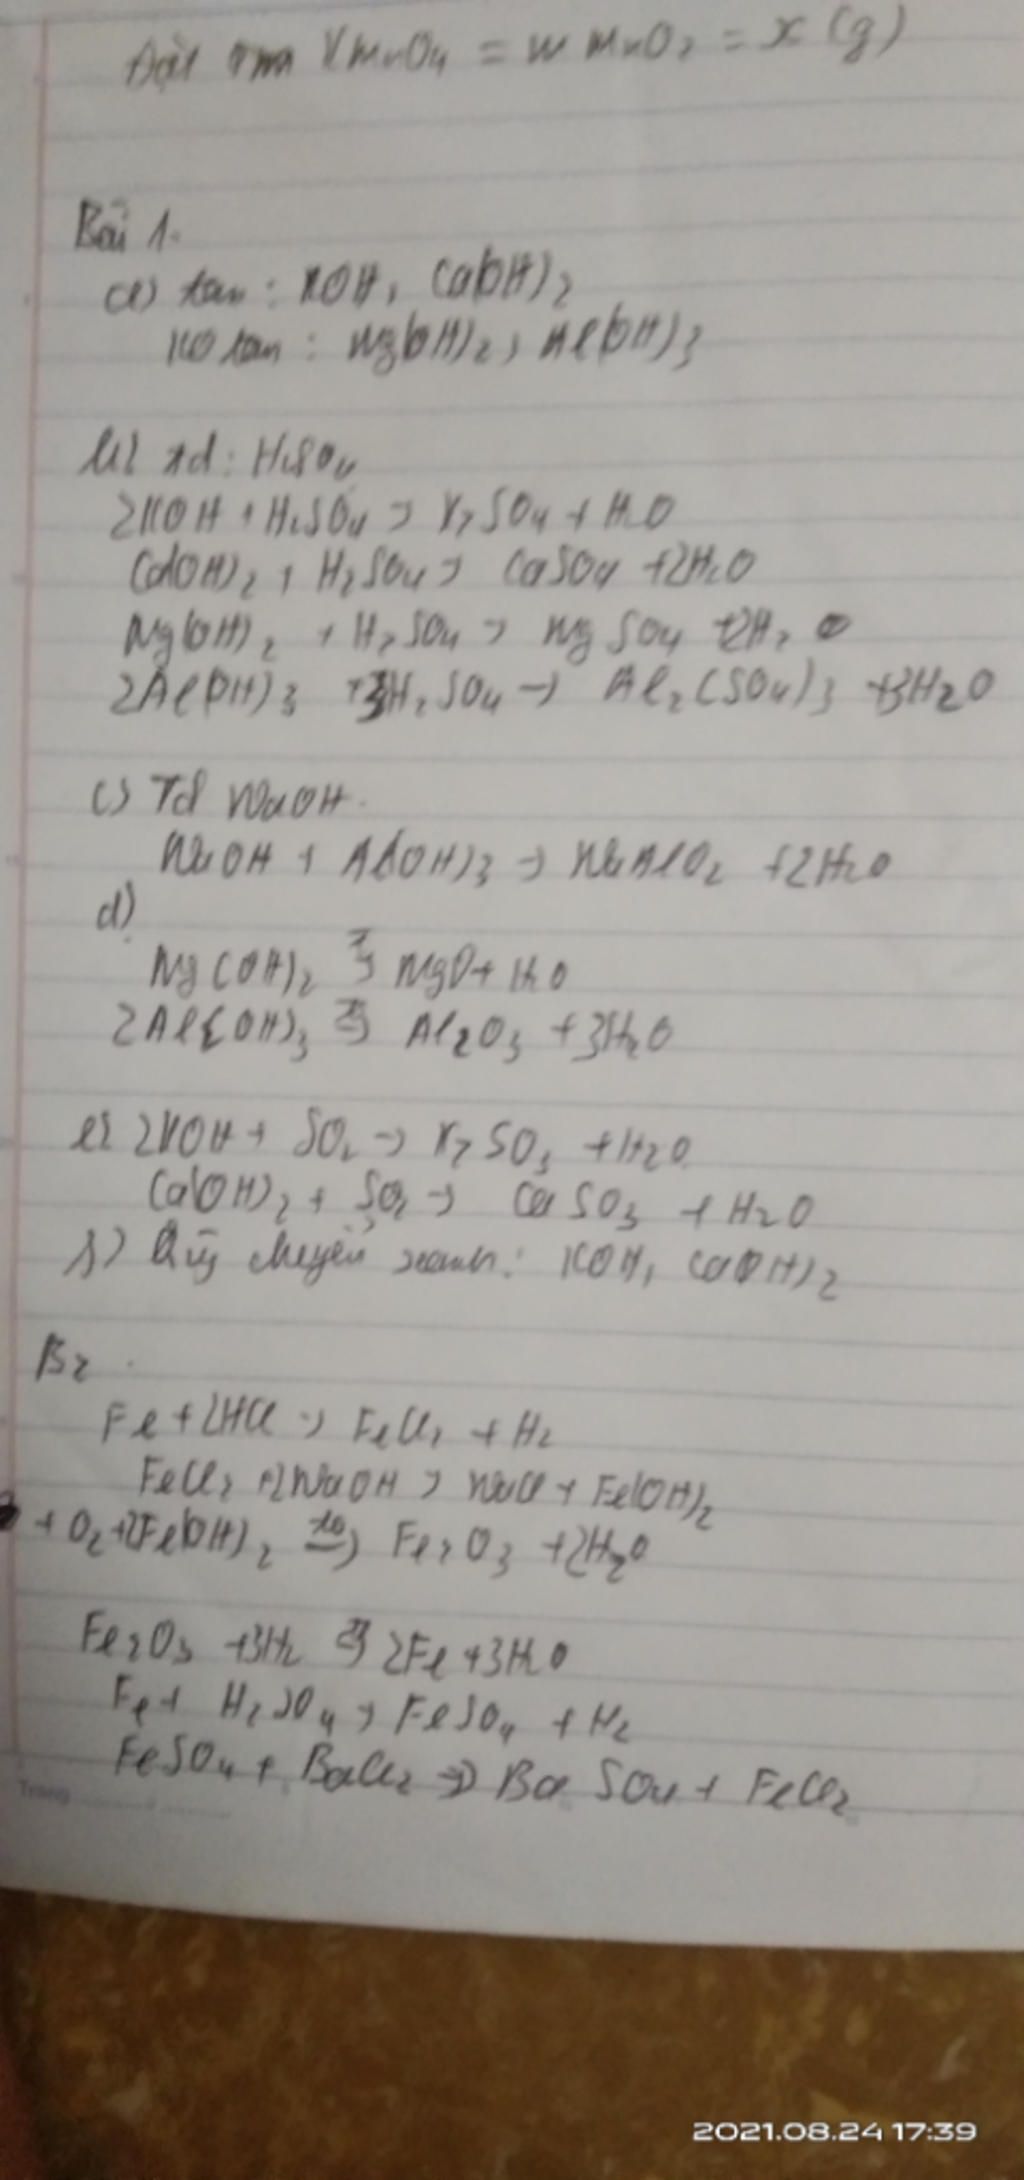 Đặt m KMnO4 = m MnO2 = x (g)
Bài 1.
a) tan: KOH, Ca(OH)2
Ko tan: Mg(OH)2, Al(OH)3
b) td: H2SO4
2KOH + H2SO4 → K2SO4 + H2O
Ca(OH)2 + H2SO4 → CaSO4 + 2H2O
Mg(OH)2 + H2SO4 → MgSO4 + 2H2O
2Al(OH)3 + 3H2SO4 → Al2(SO4)3 + 3H2O
c) Td NaOH.
NaOH + Al(OH)3 → NaAlO2 + 2H2O
d)
Mg(OH)2 → MgO + H2O
2Al(OH)3 → Al2O3 + 3H2O
e) 2KOH + SO2 → K2SO3 + H2O
Ca(OH)2 + SO2 → CaSO3 + H2O
f) Quỳ chuyển xanh: KOH, Ca(OH)2
B2.
Fe + 2HCl → FeCl2 + H2
FeCl2 + 2NaOH → NaCl + Fe(OH)2
+ O2 + 2Fe(OH)2 to→ Fe2O3 + 2H2O
Fe2O3 + 3H2 → 2Fe + 3H2O
Fe + H2SO4 → FeSO4 + H2
FeSO4 + BaCl2 → BaSO4 + FeCl2
Trang
2021.08.24 17:39